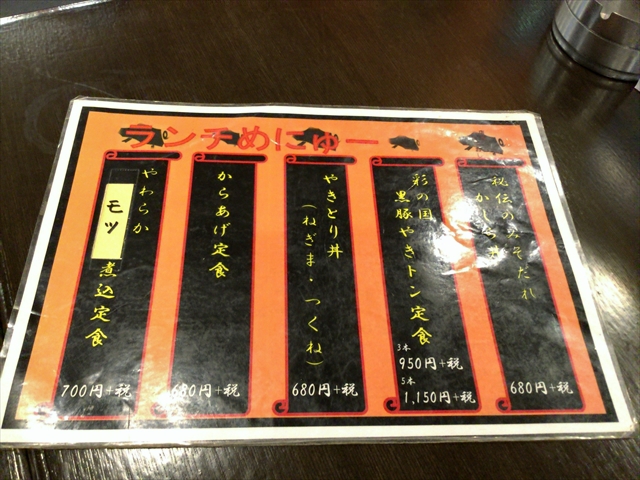 ランチめにゅー
秘伝のみそだれ
かしら丼
680円+税
彩の国
黒豚やきトン定食
3本
950円+税
5本
1,150円+税
やきとり丼
(ねぎま・つくね)
680円+税
からあげ定食
680円+税
やわらか
モツ
煮込定食
700円+税